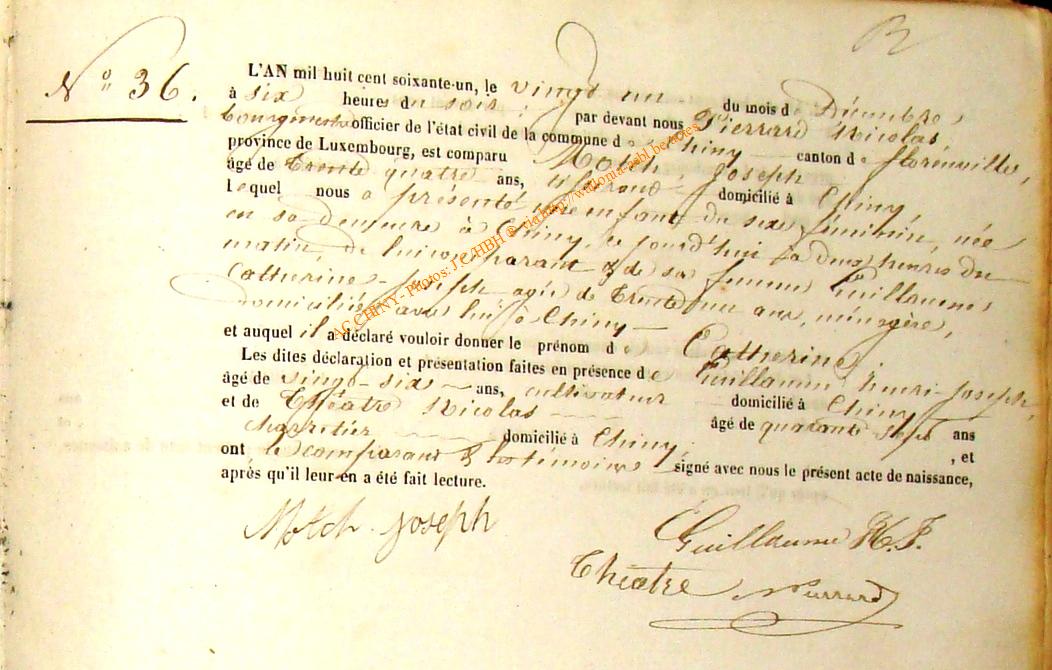 N° 36.
L'AN mil huit cent soixante-un, le vingt un du mois de Décembre
à six heures du soir, par devant nous Pierrard Nicolas,
bourgmestre officier de l'état civil de la commune de Chiny canton de Florenville,
province de Luxembourg, est comparu Motch, Joseph
âgé de trente quatre ans, domicilié à Chiny,
lequel nous a présenté un enfant du sexe féminin, née
en sa demeure à Chiny, ce jourd'hui à deux heures du
matin, de lui comparant & de sa femme Guillaume
Catherine-Joseph agée de trente un ans, ménagère,
domiciliée avec lui à Chiny
et auquel il a déclaré vouloir donner le prénom de Catherine.
Les dites déclaration et présentation faites en présence de Guillaume henri-Joseph,
âgé de vingt-six ans, cultivateur domicilié à Chiny
et de Théâtre Nicolas âgé de quarante sept ans
charretier domicilié à Chiny, , et
ont le comparant & les témoins signé avec nous le présent acte de naissance,
après qu'il leur en a été fait lecture.
Motch Joseph
Guillaume H. J.
Théatre Pierrard
AC CHINY - Photos: J C /HBH ® via http://wallonia-asbl.be/actes